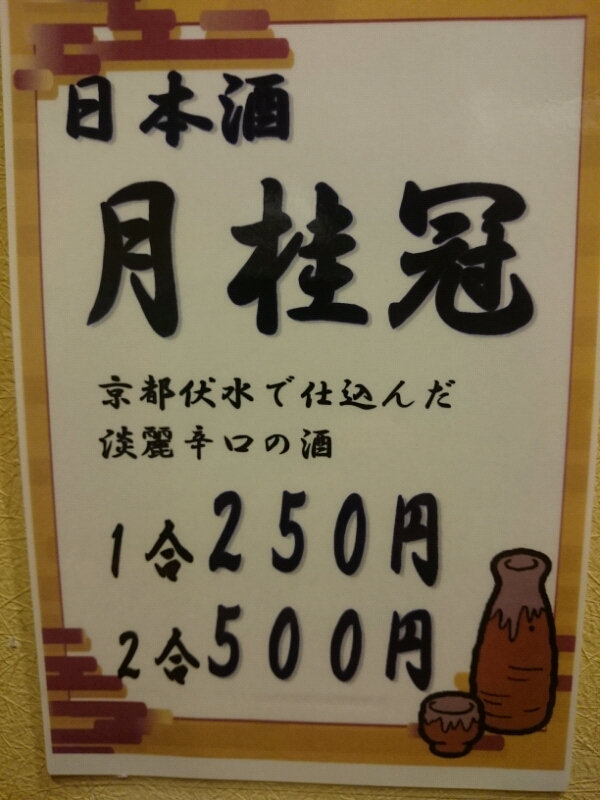 日本酒
月桂冠
京都伏水で仕込んだ
淡麗辛口の酒
1合250円
2合500円